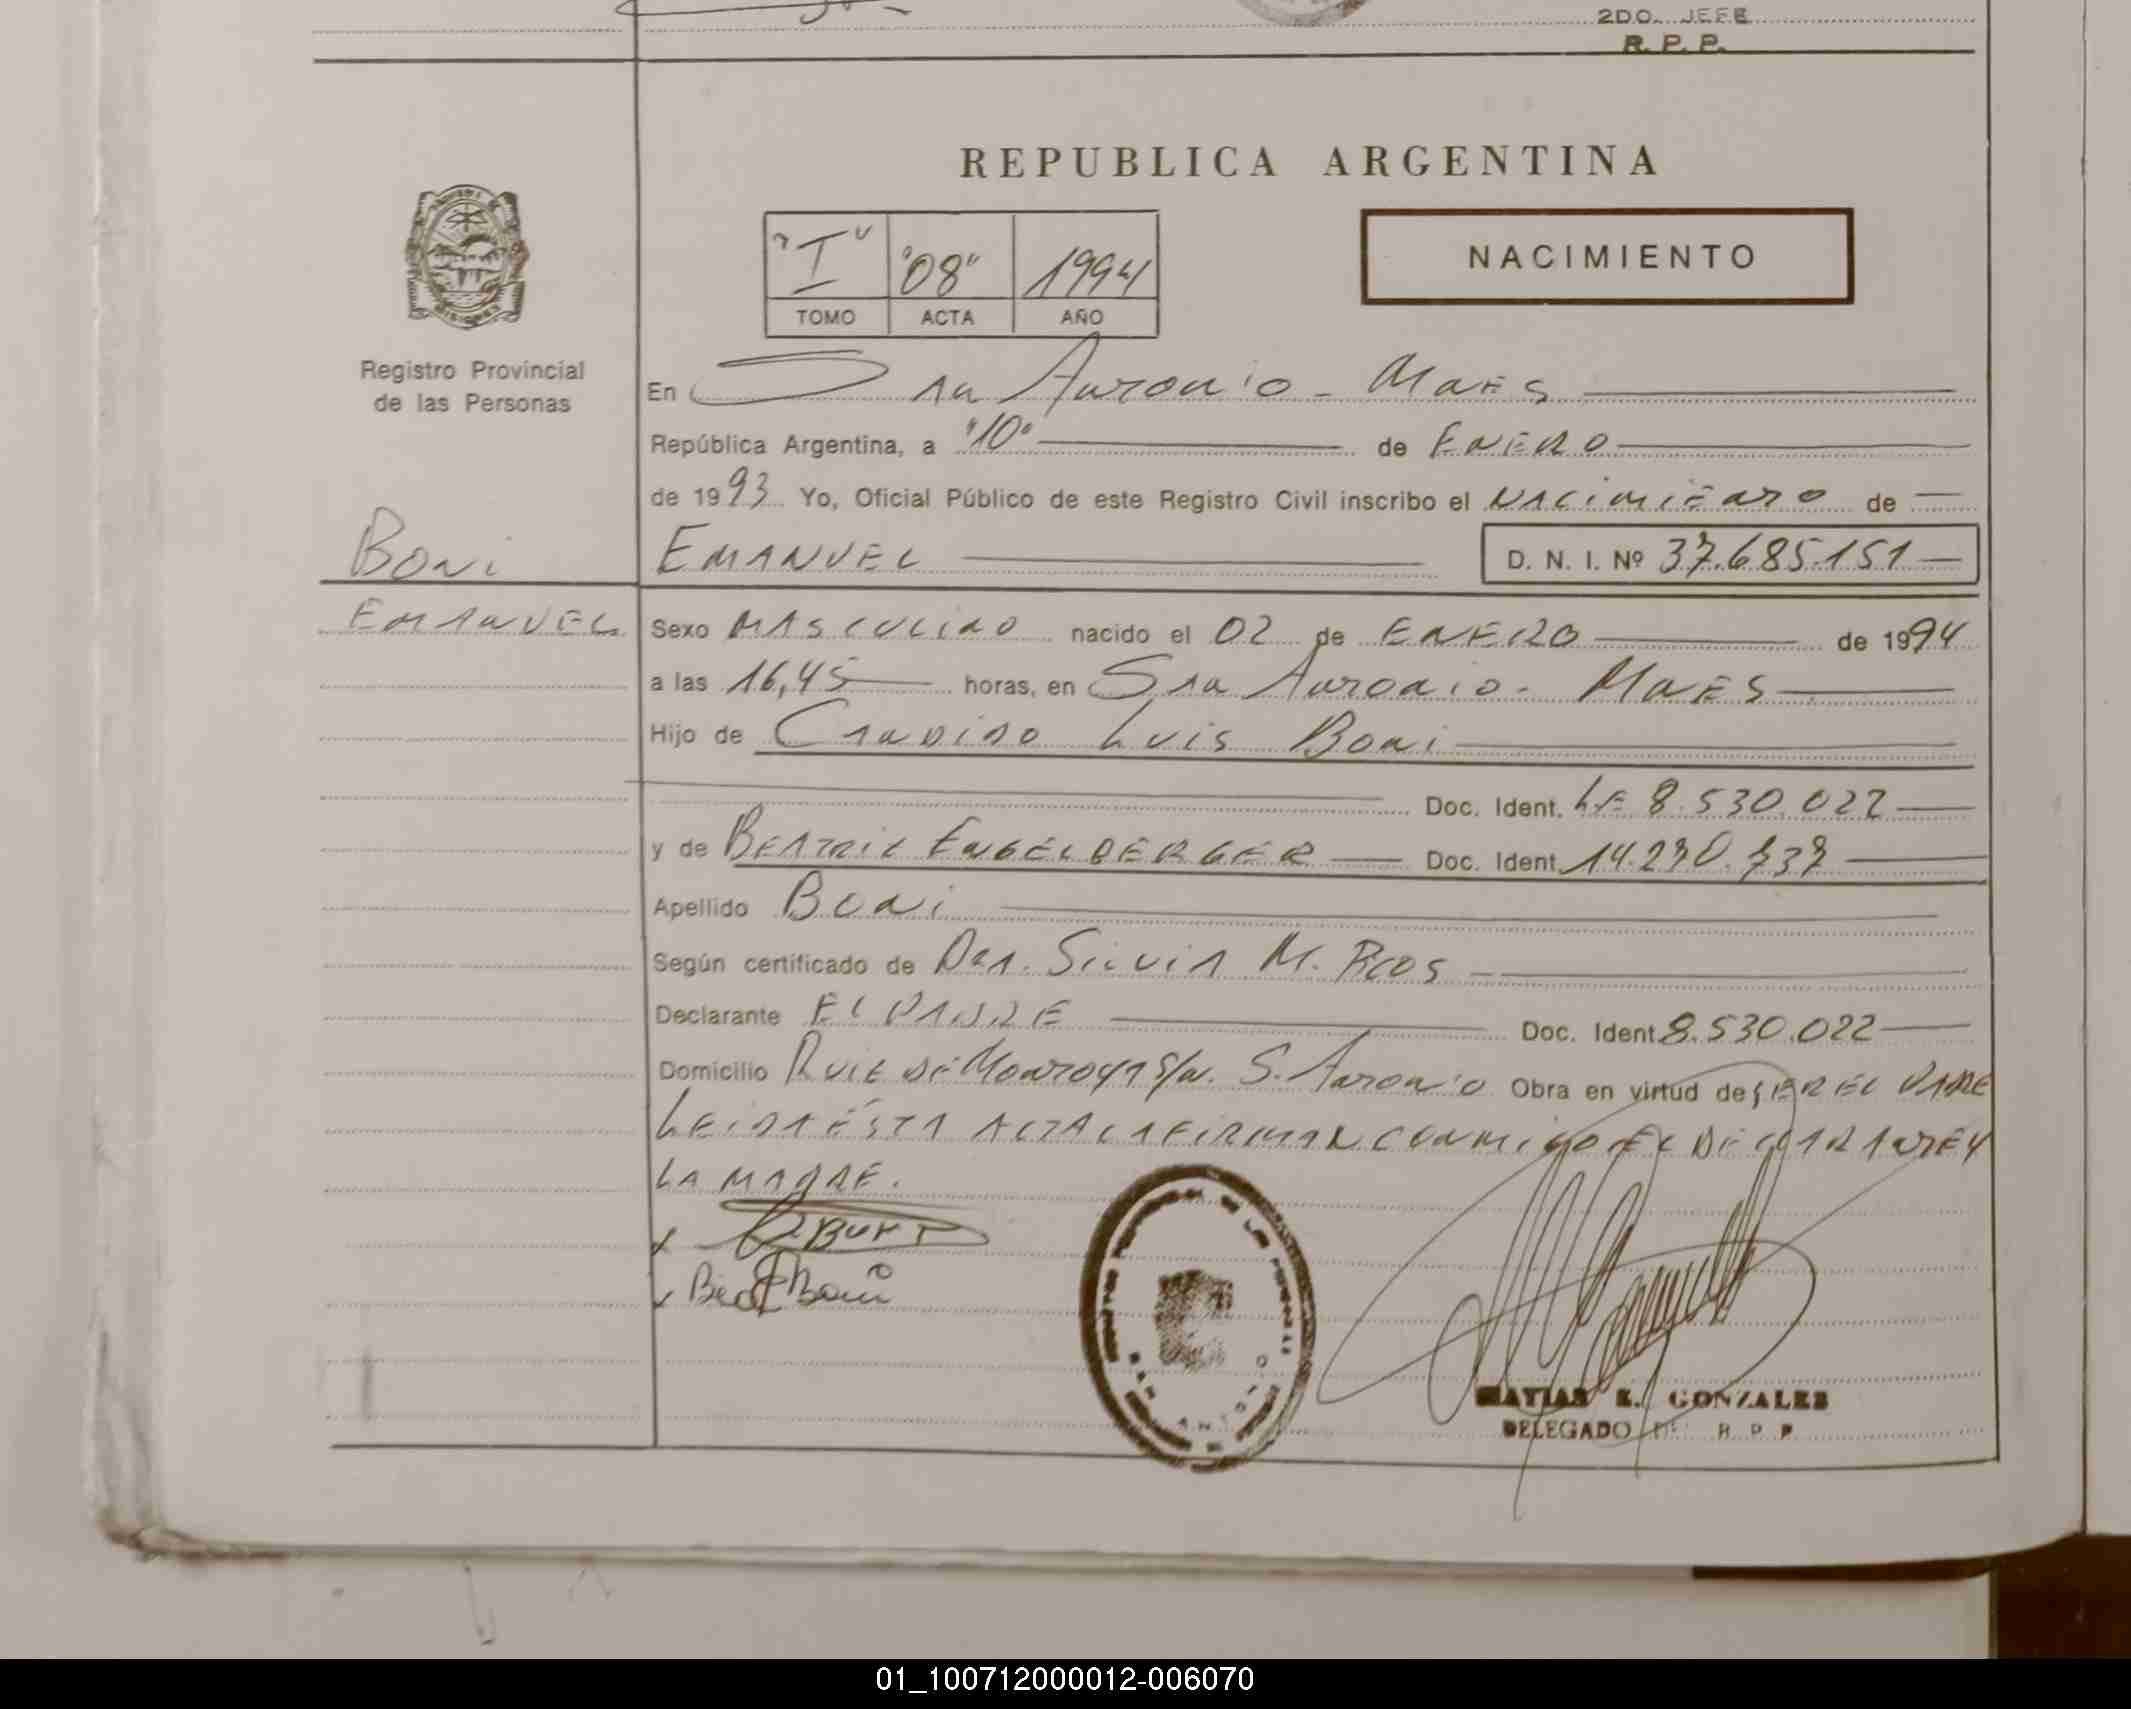 2DO. JEFE
R. P. P.
REPUBLICA ARGENTINA
"I" "08" 1994
TOMO ACTA AÑO
NACIMIENTO
Registro Provincial
de las Personas
En San Antonio - Mnes
República Argentina, a "10" de ENERO
de 1993 Yo, Oficial Público de este Registro Civil inscribo el NACIMIENTO de
Boni
EMANUEL D. N. I. Nº 37.685.151
EMANUEL
Sexo MASCULINO nacido el 02 de ENERO de 1994
a las 16,45 horas, en San Antonio - Mnes
Hijo de Candido Luis Boni
Doc. Ident. LE 8.530.022
y de BEATRIZ ENGELBERGER Doc. Ident. 14.270.737
Apellido Boni
Según certificado de Dra. Silvia M.
Declarante EL PADRE Doc. Ident. 8.530.022
Domicilio Ruiz de Montoya S/n. S. Antonio Obra en virtud de SER EL PADRE
LEIDA ESTA ACTA LA FIRMAN CONMIGO EL DECLARANTE Y
LA MADRE.
x
x Beat Boni
MATIAS E. GONZALES
DELEGADO DE R P P
01_100712000012-006070